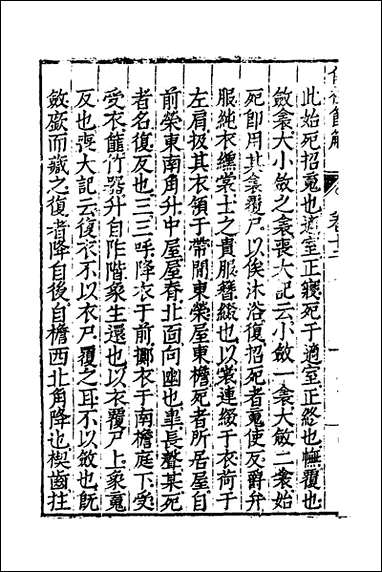 儀禮節解 卷十二 一
此始死招䰟也適室正寢死于適室正終也幠覆也
斂衾大小斂之衾喪大記云小斂一衾大斂二衾始
死卽用其衾覆尸以俟沐浴復招死者䰟使反爵弁
服純衣纁裳士之貴服簪綴也以裳連綴于衣荷于
左肩扱其衣領于帶閒東榮屋東檐死者所居屋自
前榮東南角升中屋屋脊北面向幽也臯長聲某死
者名復反也三三呼降衣于前擲衣于南檐庭下受
受衣篚竹器升自阼階象生還也以衣覆尸上象䰟
反也喪大記云復衣不以衣尸覆之耳不以斂也旣
斂󠄁而藏之復者降自後自檐西北角降也楔齒拄